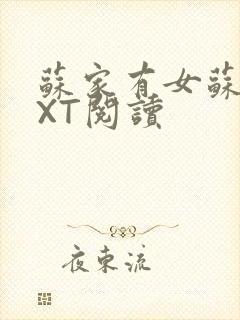 蘇家有女蘇
XT閱讀
夜東流